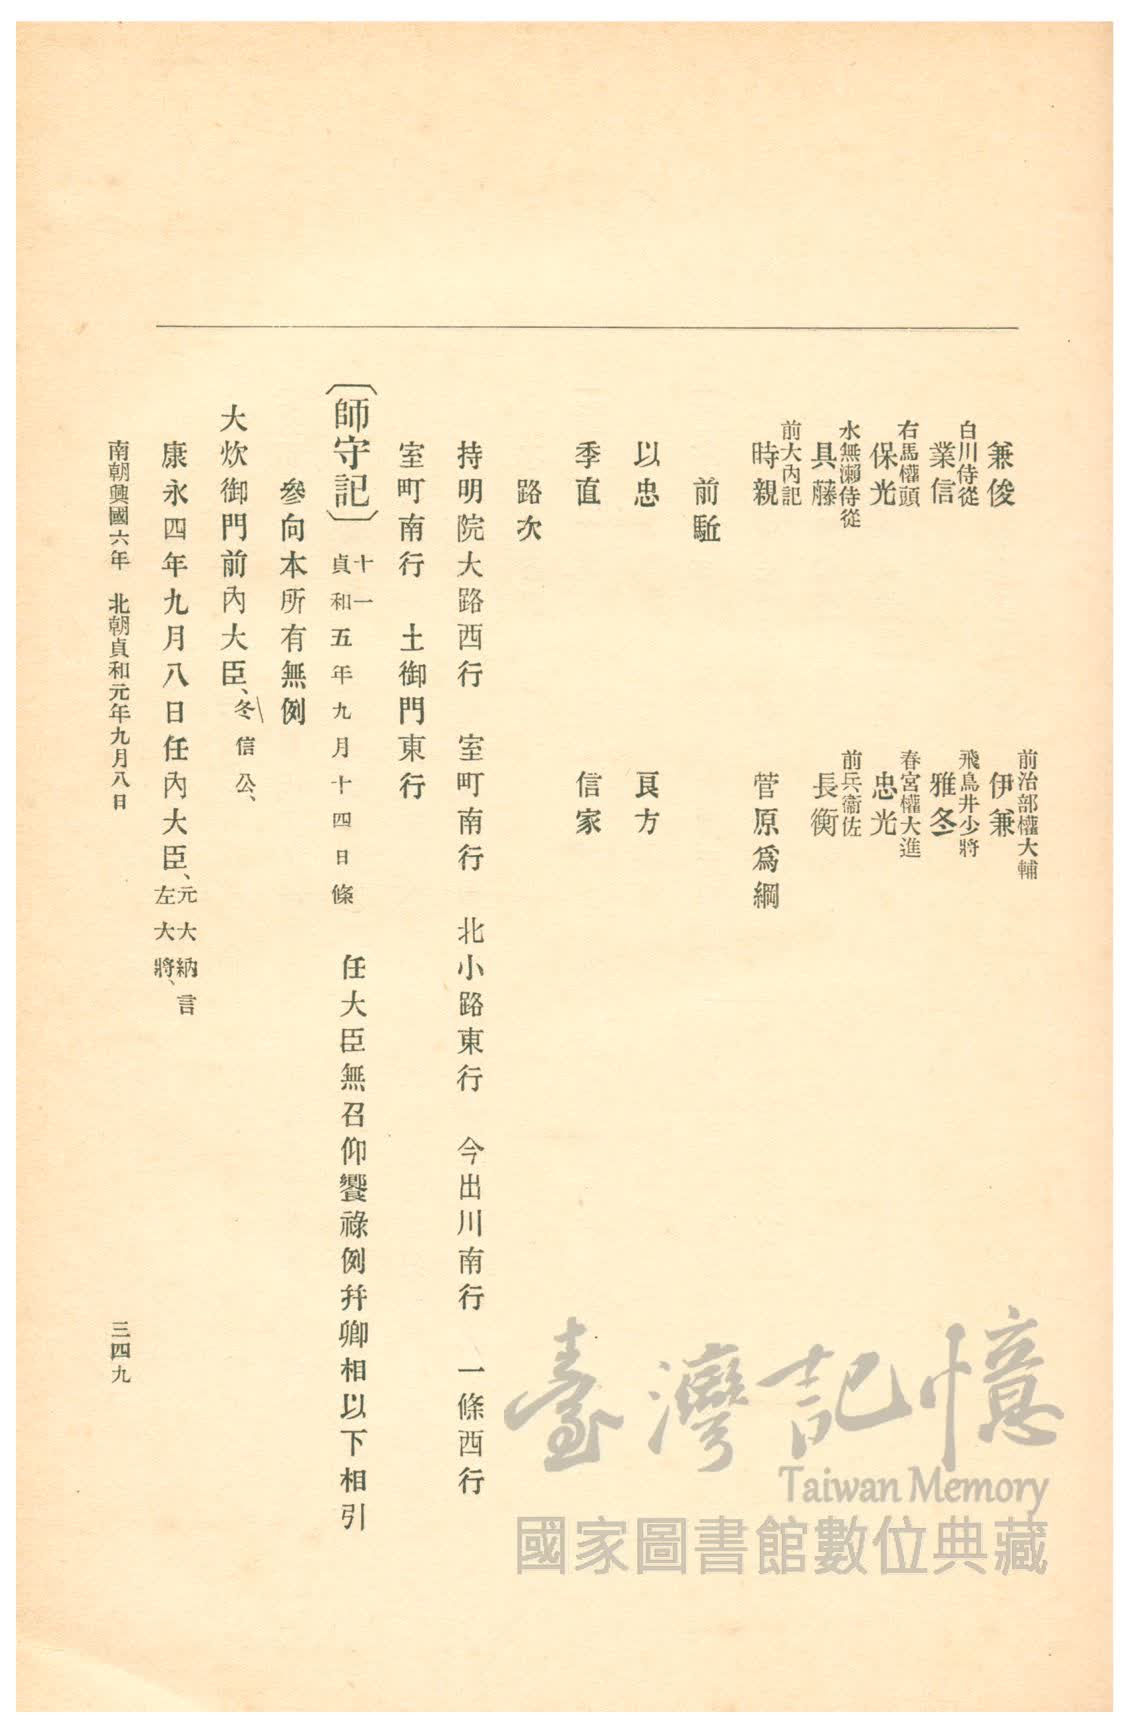 兼俊
前治部權大輔
伊兼
白川侍從
業信
飛鳥井少將
雅冬
右馬權頭
保光
春宮權大進
忠光
水無瀨侍從
具藤
前兵衞佐
長衡
前大內記
時親
菅原爲綱
前駈
以忠
良方
季直
信家
路次
持明院大路西行 室町南行 北小路東行 今出川南行 一條西行
室町南行 土御門東行
〔師守記〕十一
貞和五年九月十四日條
任大臣無召仰饗祿例幷卿相以下相引
參向本所有無例
大炊御門前內大臣、冬信公、
康永四年九月八日任內大臣、元大納言
左大將、
南朝興國六年 北朝貞和元年九月八日
三四九
臺灣記憶
Taiwan Memory
國家圖書館數位典藏